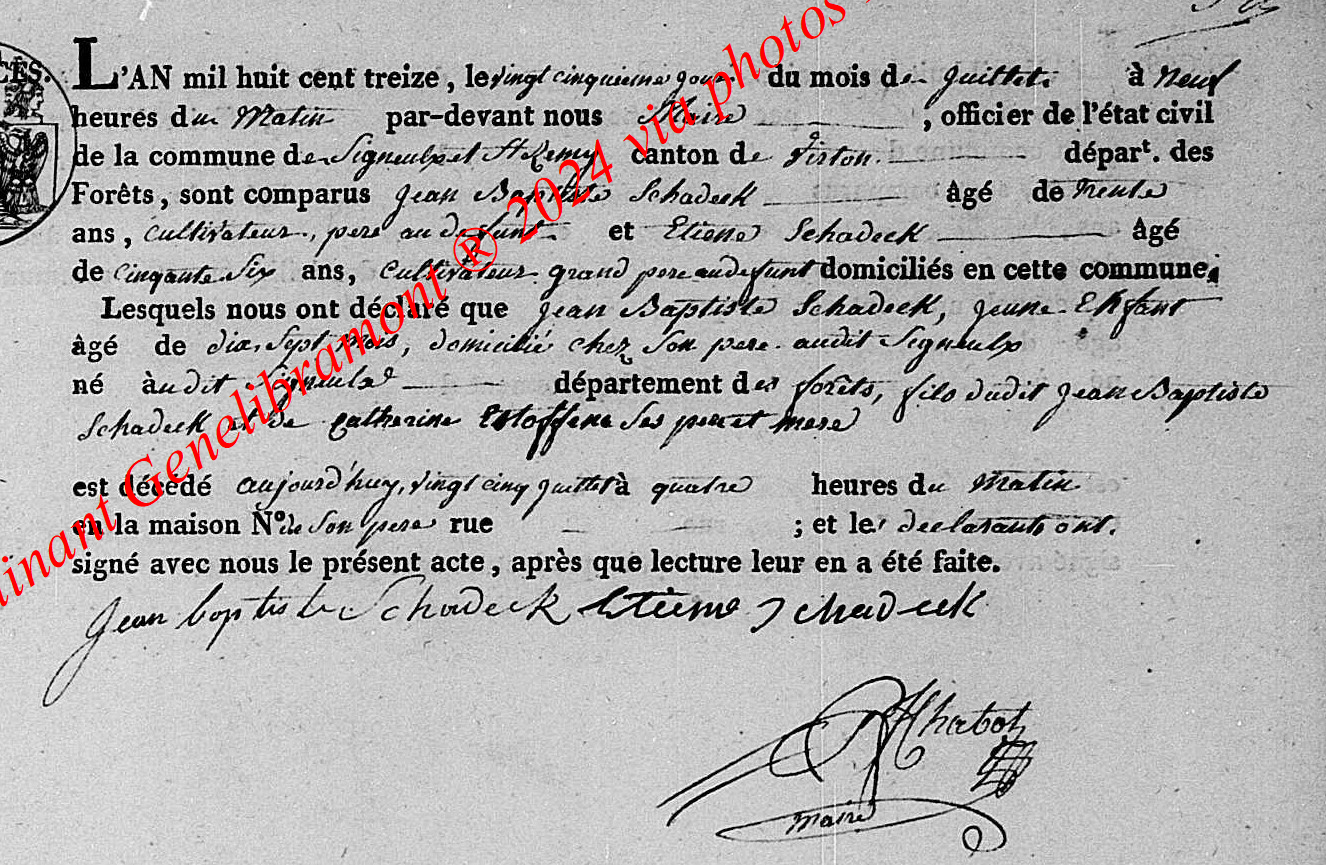 CÈS.
L'AN mil huit cent treize, le vingt cinquieme jour du mois de Juillet. à neuf
heures du Matin par-devant nous Maire, officier de l'état civil
de la commune de Signeulx et St Remy canton de Virton. départ. des
Forêts, sont comparus Jean Baptiste Schadeck âgé de trente
ans, Cultivateur, pere au defunt. et Etiene Schadeck âgé
de cinqante Six ans, Cultivateur grand pere au defunt domiciliés en cette commune.
Lesquels nous ont déclaré que Jean Baptiste Schadeck, jeune Enfant
âgé de dix Sept Mois, domicilié chez Son pere audit Signeulx
né àudit Signeulx département des forêts, fils dudit Jean Baptiste
Schadeck et de Catherine Estoffene Ses pere et mere
est décédé aujourd'huy, vingt cinq Juillet à quatre heures du Matin
en la maison No. de Son pere rue ; et les declarants ont.
signé avec nous le présent acte, après que lecture leur en a été faite.
Jean baptiste Schadeck Etiene Schadeck
Chabot
maire
inant Genelibramont ® 2024 via photos